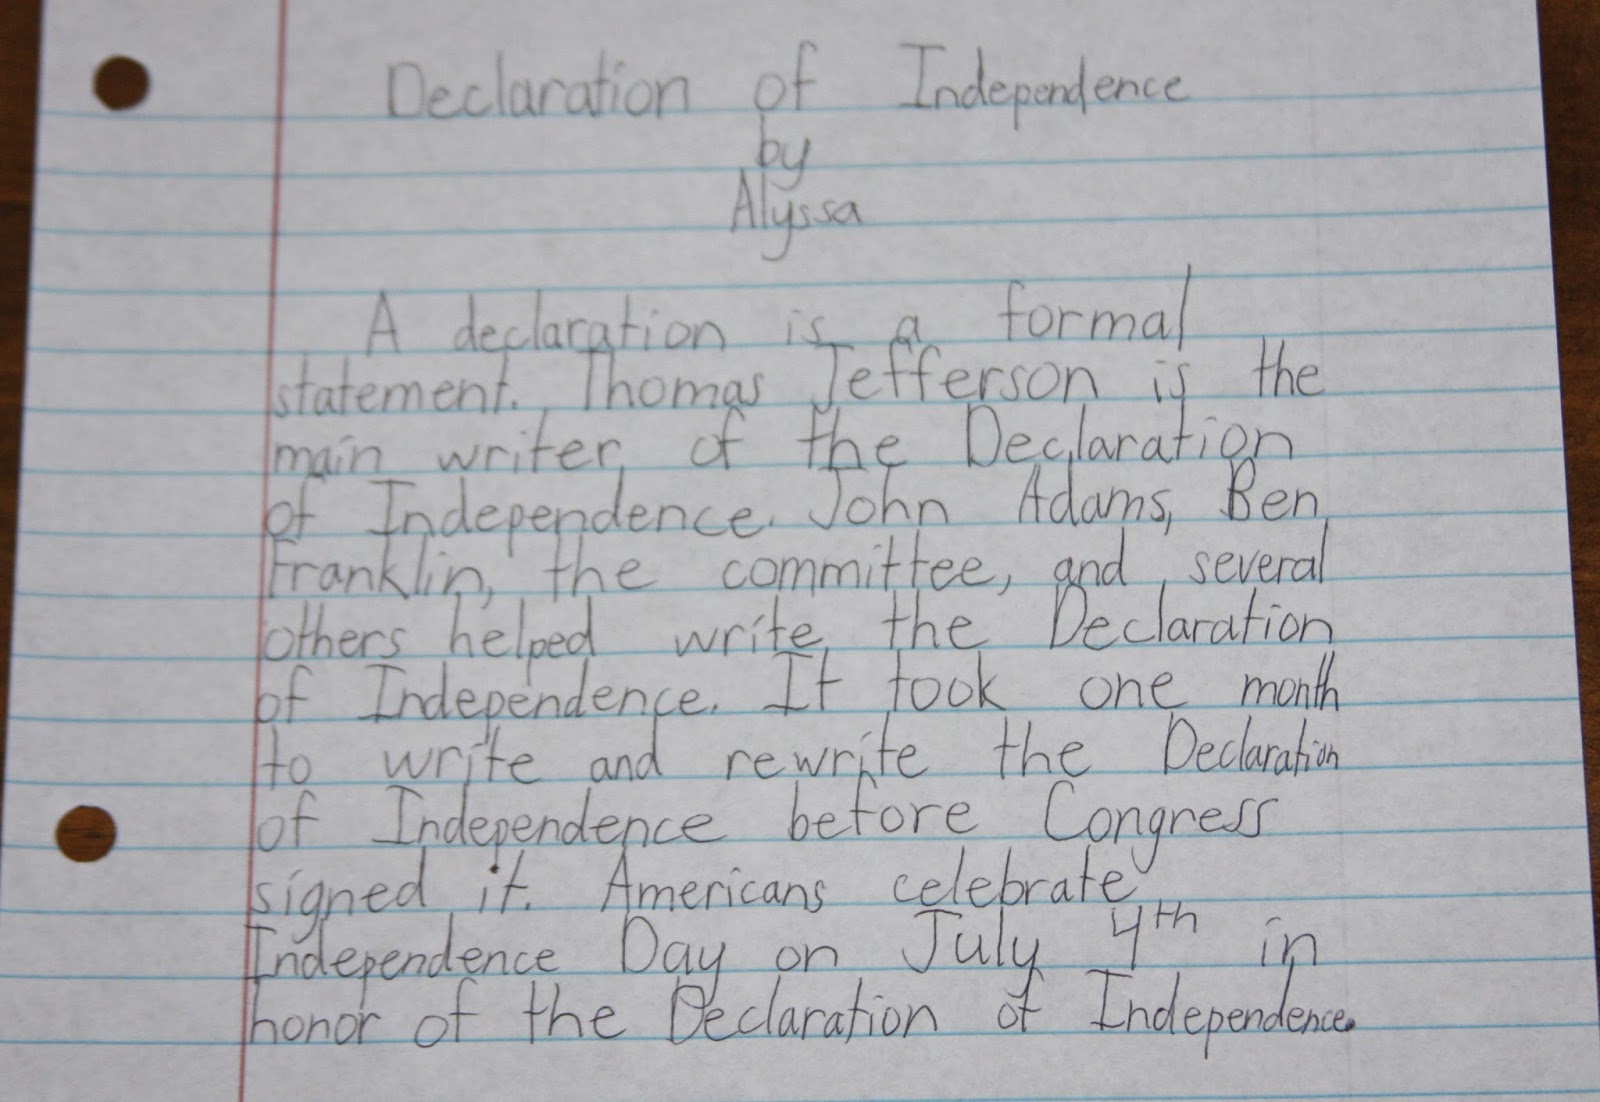 Declaration of Independence
by
Alyssa
A declaration is a formal
statement. Thomas Jefferson is the
main writer of the Declaration
of Independence. John Adams, Ben
Franklin, the committee, and several
others helped write the Declaration
of Independence. It took one month
to write and rewrite the Declaration
of Independence before Congress
signed it. Americans celebrate
Independence Day on July 4th in
honor of the Declaration of Independence.